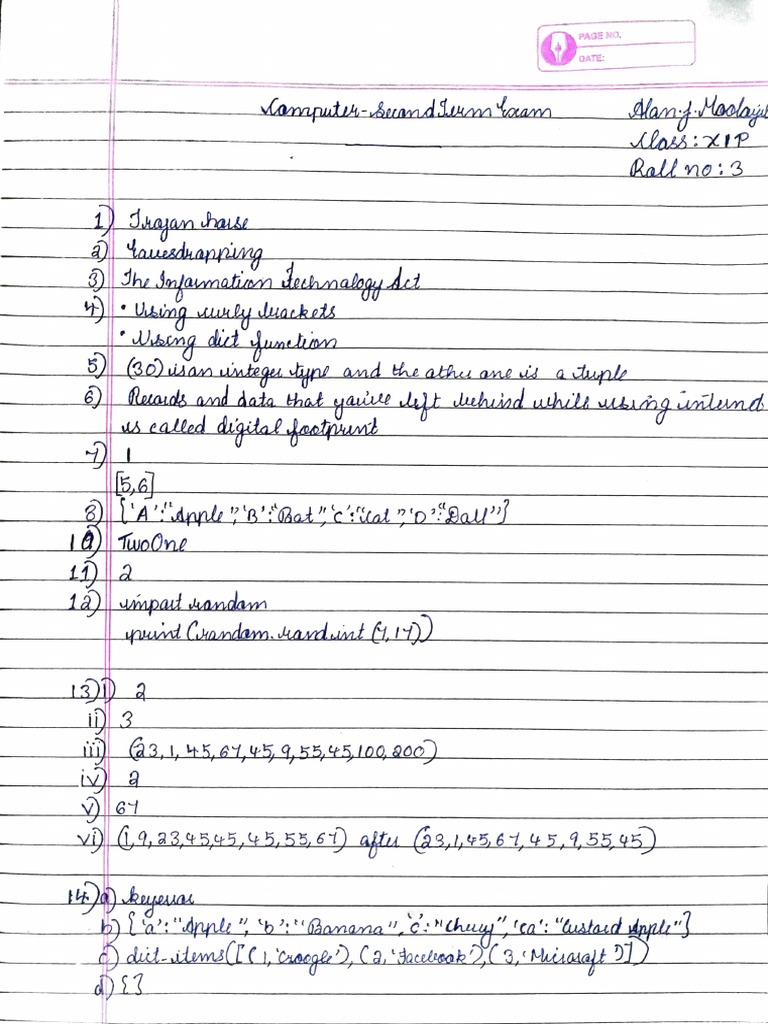 PAGE NO.
DATE:
Computer-Second Term Exam
Alan.J.
Class: XI P
Roll no: 3
1) Trojan horse
2) Eavesdropping
3) The Information Technology Act
4) • Using curly brackets
• Using dict function
5) (30) is an integer type and the other one is a tuple
6) Records and data that you've left behind while using
is called digital footprint
7) 1
[5,6]
8) {'A':"Apple",'B':"Bat",'C':"Cat",'D':"Doll"}
10) TwoOne
11) 2
12) import random
print (random.randint (7,17))
13) i) 2
ii) 3
iii) (23,1,45,67,45,9,55,45,100,200)
iv) 2
v) 67
vi) (1,9,23,45,45,45,55,67) after (23,1,45,67,45,9,55,45)
14) a) keyerror
b) {'a':"Apple",'b':"Banana",'c':"Cherry",'ca':"Custard Apple"}
c) dict_items([(1,'Google'),(2,'Facebook'),(3,'Microsoft')])
d) {}